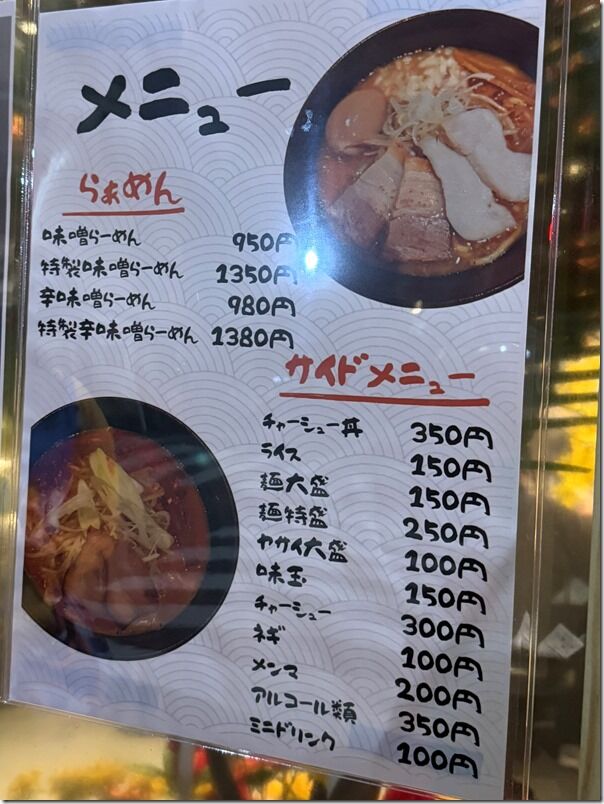 メニュー
らぁめん
味噌らーめん 950円
特製味噌らーめん 1350円
辛味噌らーめん 980円
特製辛味噌らーめん 1380円
サイドメニュー
チャーシュー丼 350円
ライス 150円
麺大盛 150円
麺特盛 250円
ヤサイ大盛 100円
味玉 150円
チャーシュー 300円
ネギ 100円
メンマ 200円
アルコール類 350円
ミニドリンク 100円